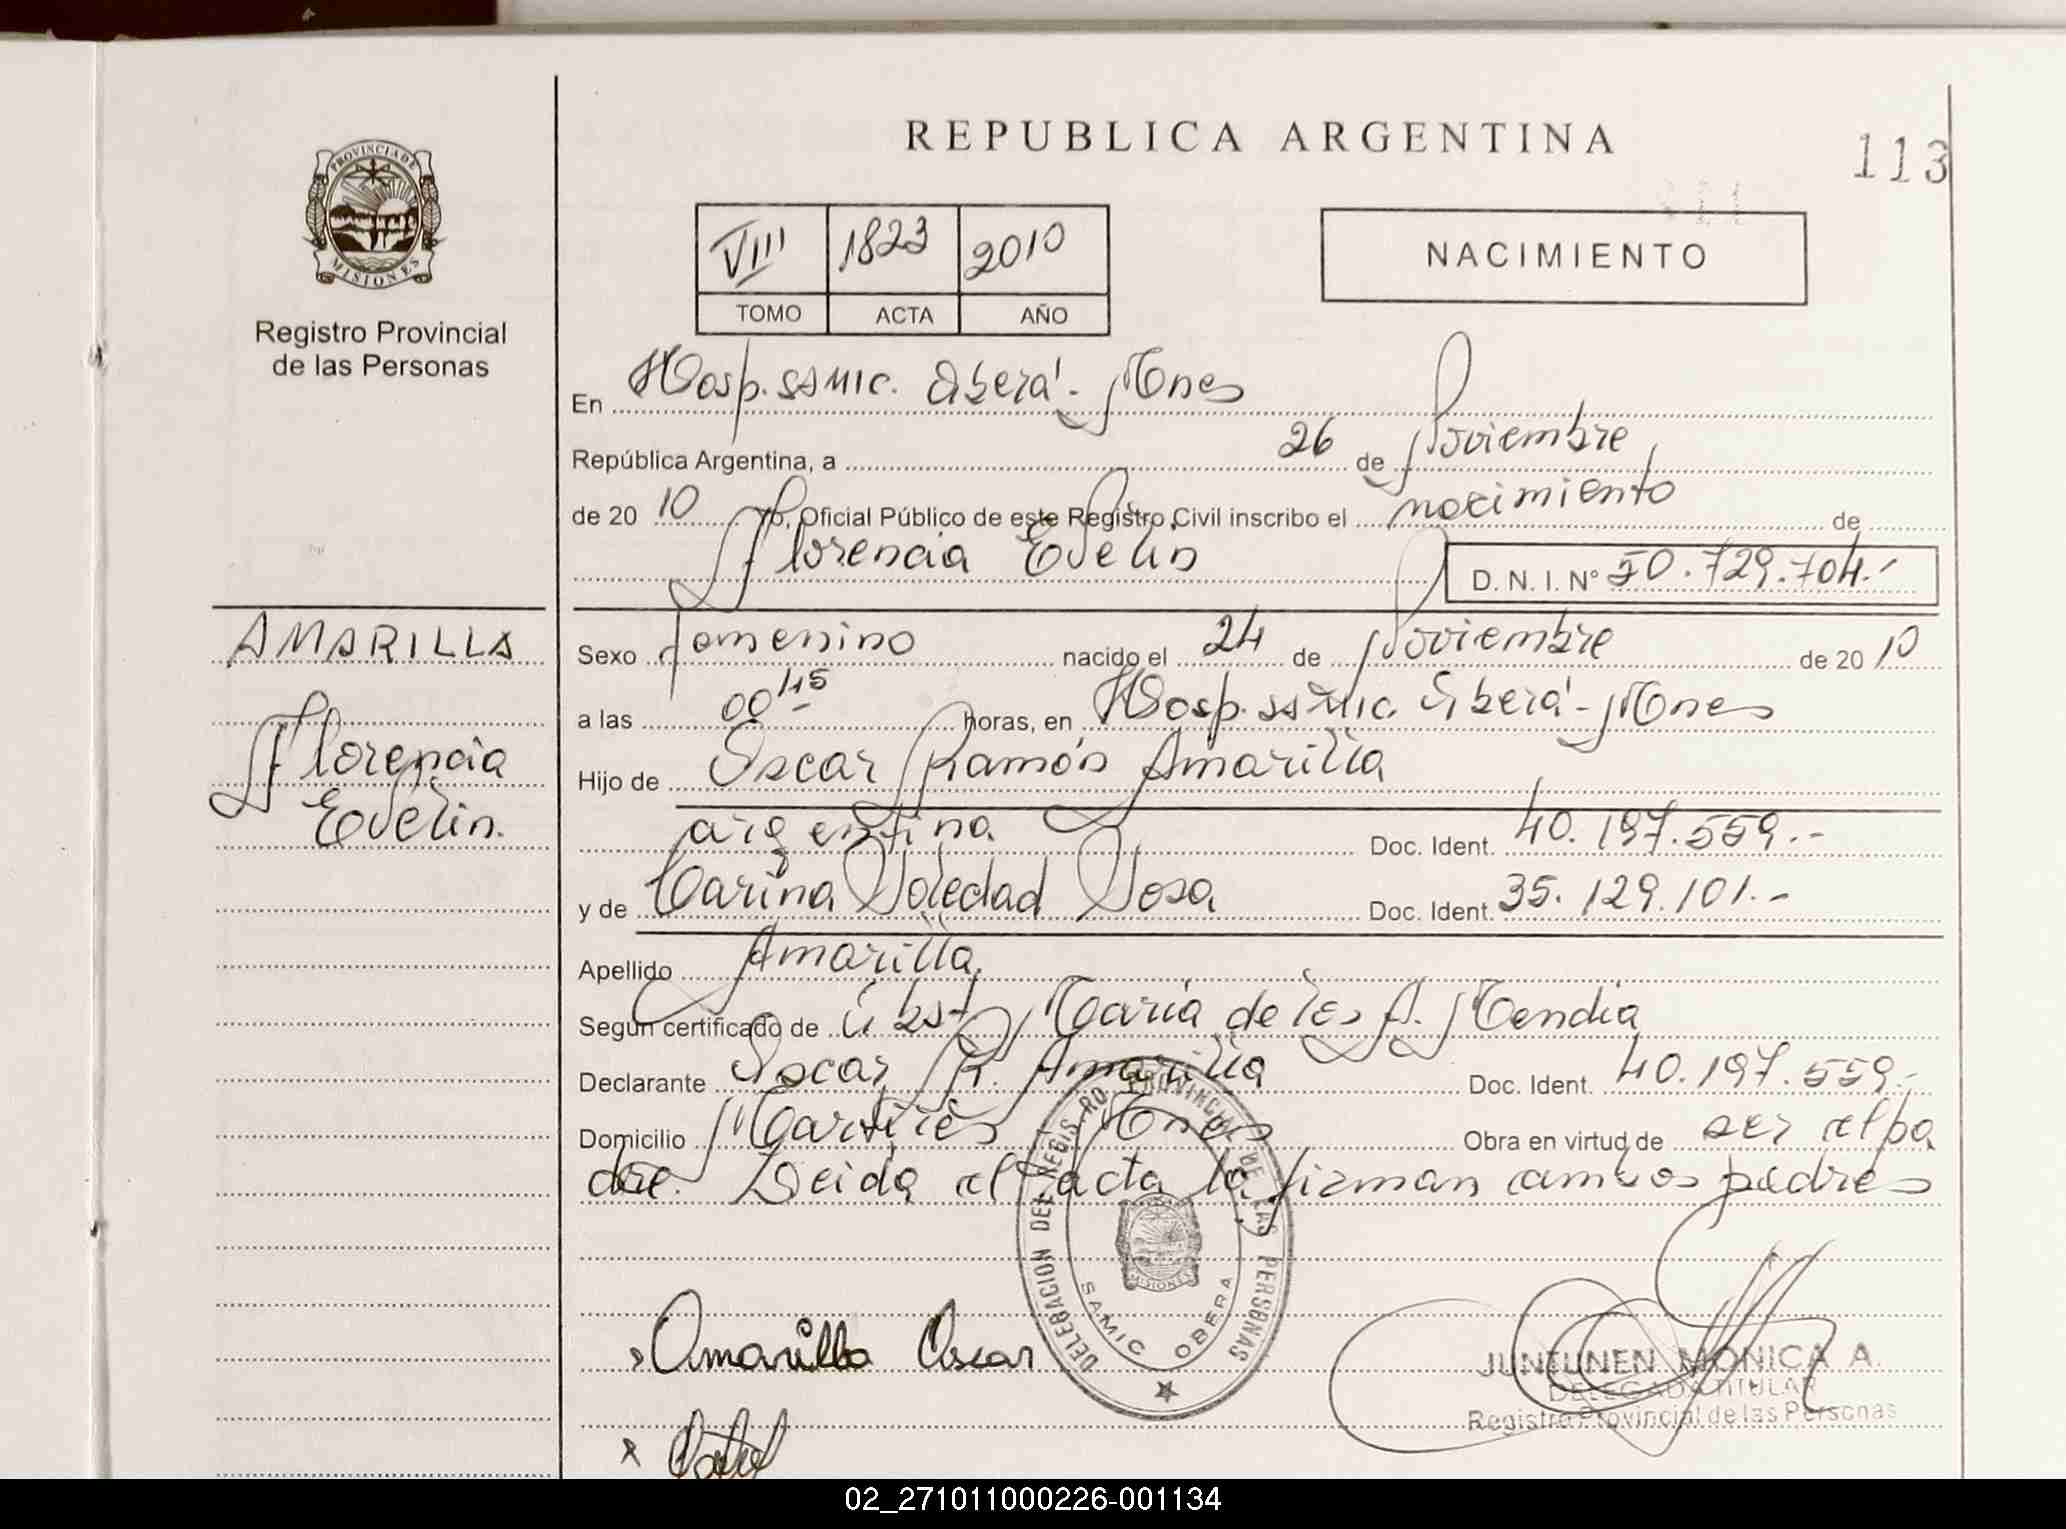 REPUBLICA ARGENTINA
113
PROVINCIA DE
MISIONES
Registro Provincial
de las Personas
VIII 1823 2010
TOMO ACTA AÑO
NACIMIENTO
En Hosp. SAMIC. Oberá - Mnes
República Argentina, a 26 de Noviembre
de 20 10 Yo, Oficial Público de este Registro Civil inscribo el nacimiento de
Florencia Evelin D. N. I. Nº 50.729.704.-
AMARILLA
Florencia
Evelin.
Sexo femenino nacido el 24 de Noviembre de 20 10
a las 00 45 horas, en Hosp. SAMIC. Oberá - Mnes
Hijo de Oscar Ramón Amarilla
argentina Doc. Ident. 40.197.559.-
y de Carina Soledad Sosa Doc. Ident. 35.129.101.-
Apellido Amarilla
Según certificado de Obst María de los A. Mendia
Declarante Oscar R. Amarilla Doc. Ident. 40.197.559.-
Domicilio Mártires Mnes Obra en virtud de ser el pa
dre. Leida el acta la firman ambos padres
DELEGACION DEL REGISTRO PROVINCIAL DE LAS PERSONAS
MISIONES
SAMIC OBERA
Amarilla Oscar
JUNTUNEN MONICA A.
DELEGADA TITULAR
Registro Provincial de las Personas
02_271011000226-001134